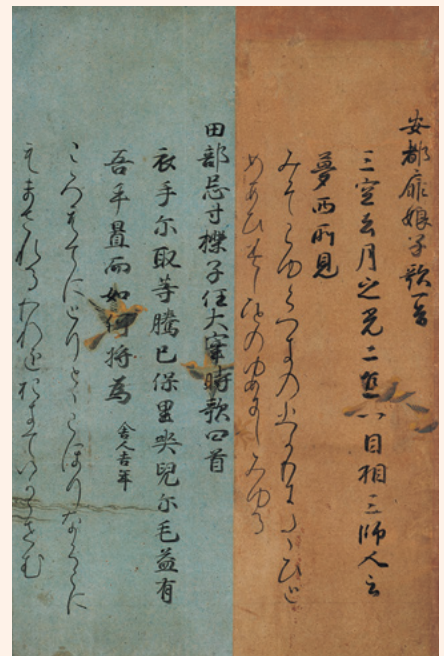 安都扉娘子歌一首
三空去月之光二直一目相三師人之
夢西所見
みそらゆくつきのひかりにたゝひと
めあひみしひとのゆめにしみゆる
田部忌寸櫟子任大宰時歌四首
衣手尓取等騰己保里哭兒尓毛益有
吾乎置而如何将為 舎人吉年
ころもてにとりとゝこほりなくこに
もまされるわれをおきていかゝせむ